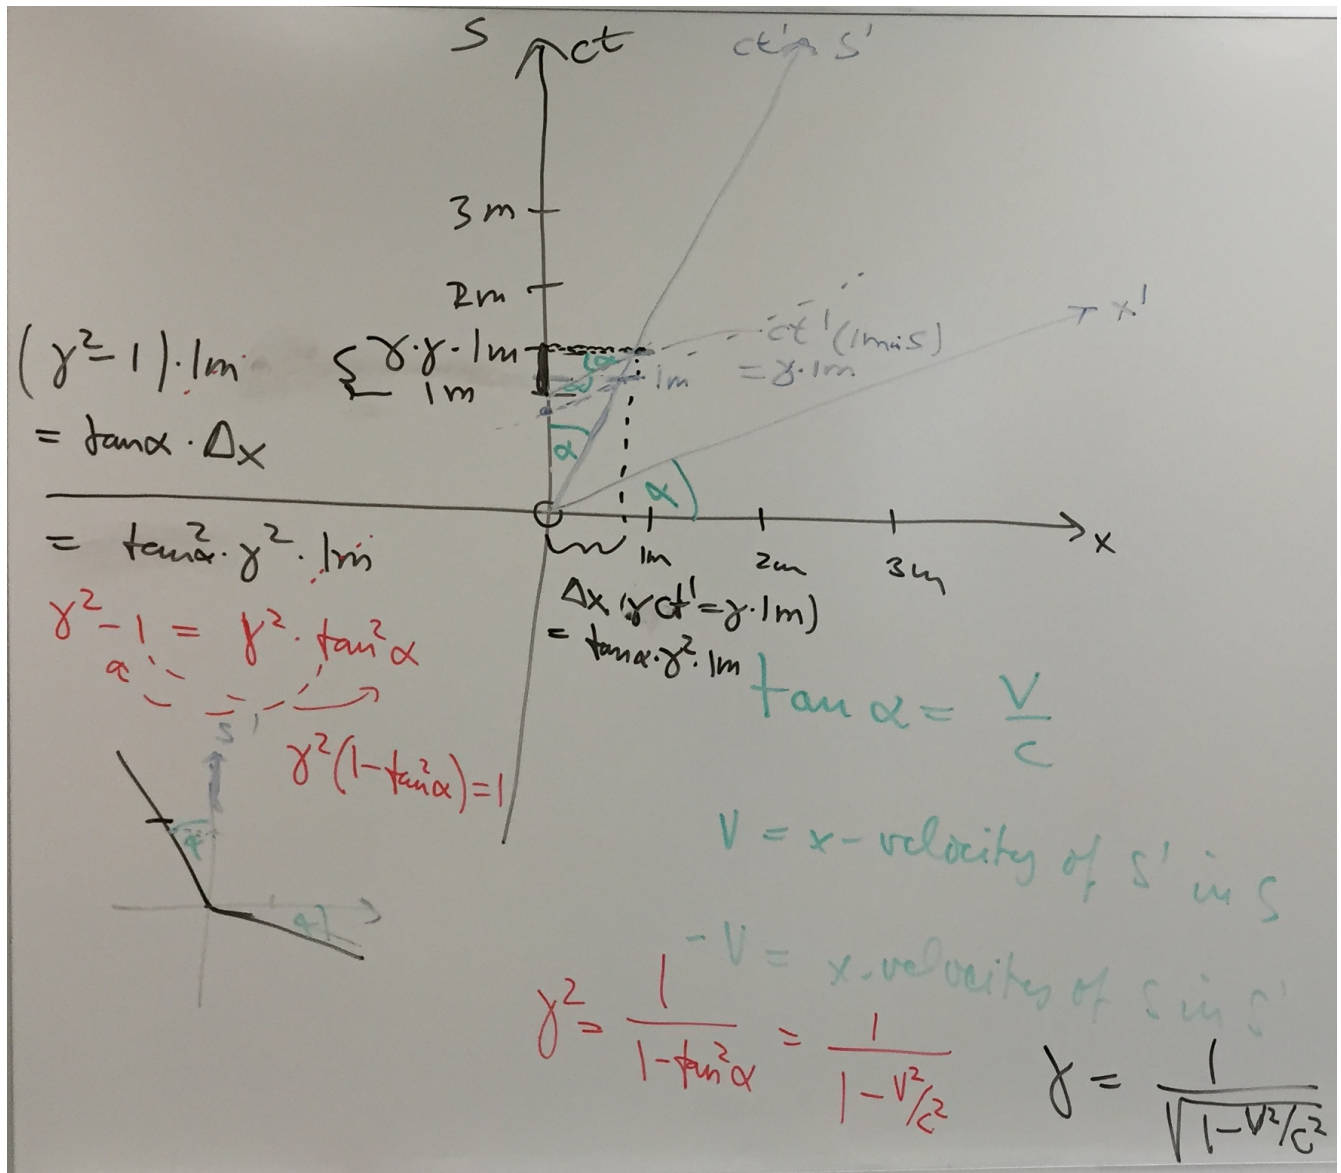 S ct ct' S'
3m
2m
x'
(γ²-1)·1m
γ·γ·1m
1m
ct'(1m in S)
= γ·1m
1m
α
α
= tanα · Δx
α
α
x
1m 2m 3m
= tan²α · γ² · 1m
Δx (γ ct' = γ·1m)
= tanα·γ²·1m
γ²-1 = γ² · tan²α
tan α = V/c
S'
γ²(1-tan²α)=1
V = x-velocity of S' in S
-V = x-velocity of S in S'
γ² = 1/(1-tan²α) = 1/(1-V²/c²)
γ = 1/√(1-V²/c²)